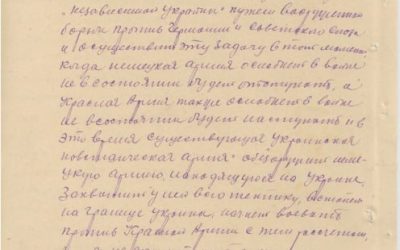 „независимой Украины" путем вооруженной
борьбы против Германии и Советского Союза
и осуществить эту задачу в тот момент,
когда немецкая армия ослабнет в войне
не в состоянии будет отступать, а
Красная Армия также ослабнет в войне
не в состоянии будет наступать и в
это время существующая Украинская
повстанческая армия обезоружит немец-
кую армию, находящуюся на Украине,
Захватит у нее всю технику,
на границе Украины, начнет воевать
против Красной Армии с тем расчетом,